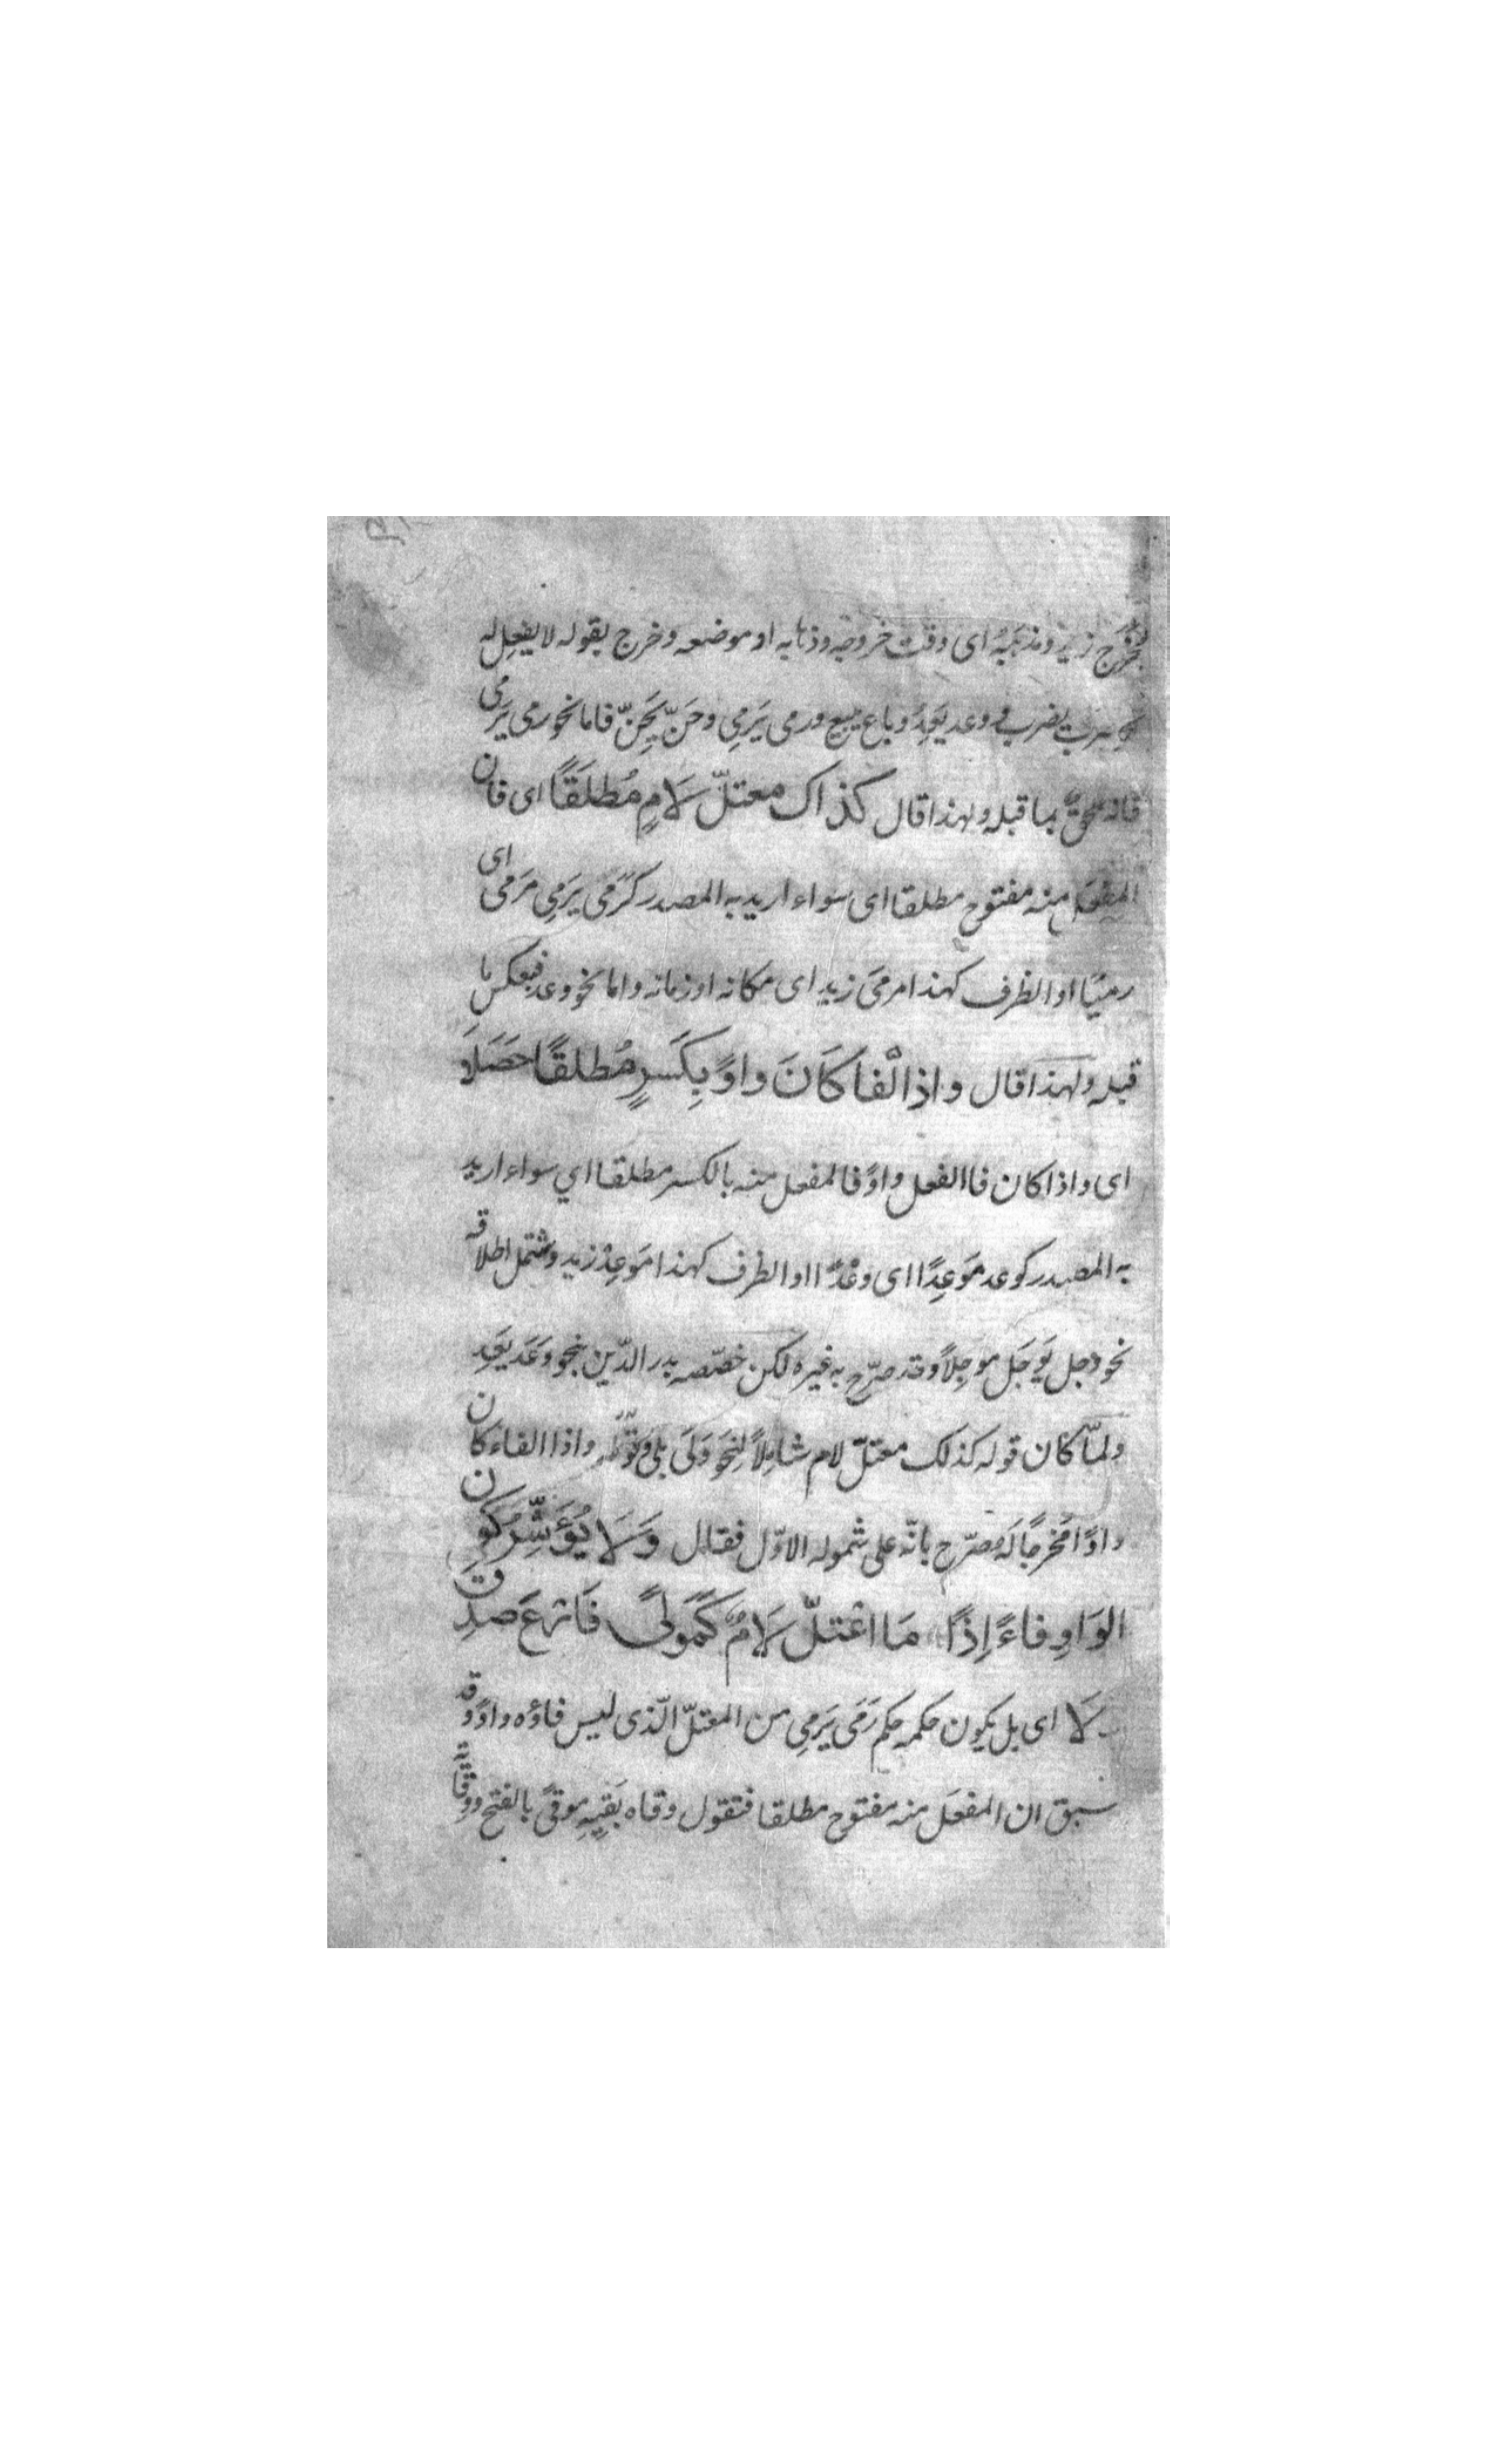 مخرج زيد ومذهبه اى وقت خروجه وذهابه او موضعه وخرج بقوله لا يفعل له
نحو ضرب يضرب ووعد يَعِدُ وباع يبيع ورمى يَرمِى وحَنّ يَحِنّ فاما نحو رمى يَرمى
فانه ملحقٌ بما قبله ولهذا قال كذاك معتلّ لَامٍ مُطلَقًا اى فان
المفعَل منه مفتوح مطلقا اى سواء اريد به المصدر كَرَمَى يَرمِى مَرمى اى
رميًا او الظرف كهذا مرمَى زيد اى مكانه او زمانه واما نحو وعد فبعكس ما
قبله ولهذا قال واذا الْفا كَانَ واوً بِكَسرٍ مُطلقًا حَصَلَا
اى واذا كان فا الفعل واوً فالمفعل منه بالكسر مطلقا اي سواء اريد
به المصدر كوعد مَوعِدًا اى وعْدًا او الظرف كهذا مَوعِدُ زيد وشمل اطلاقه
نحو وجل يَوجَل موجِلاً وقد صرّح به غيره لكن خصّصه بدر الدّين بنحو وَعَد يَعِد
ولمّا كان قوله كذلك معتلّ لام شامِلاً لنحو وَلَى يلى وقوله واذا الفاء كان
واوًا مُخرجًا لَه صرّح بانّه على شموله الاوّل فقال وَلَا يُؤَثِّرُ كَون
الوَاوِ فاءً اِذَا مَا اعْتلّ لَامٌ كَمَولًى فَارعَ صدق
ولَا اى بل يكون حكمه حكم رَمَى يَرمِى من المعتلّ الّذى ليس فاؤه واوً وقد
سبق ان المفعَل منه مفتوح مطلقا فتقول وقاه يَقيهِ موقىً بالفتح ووقًا